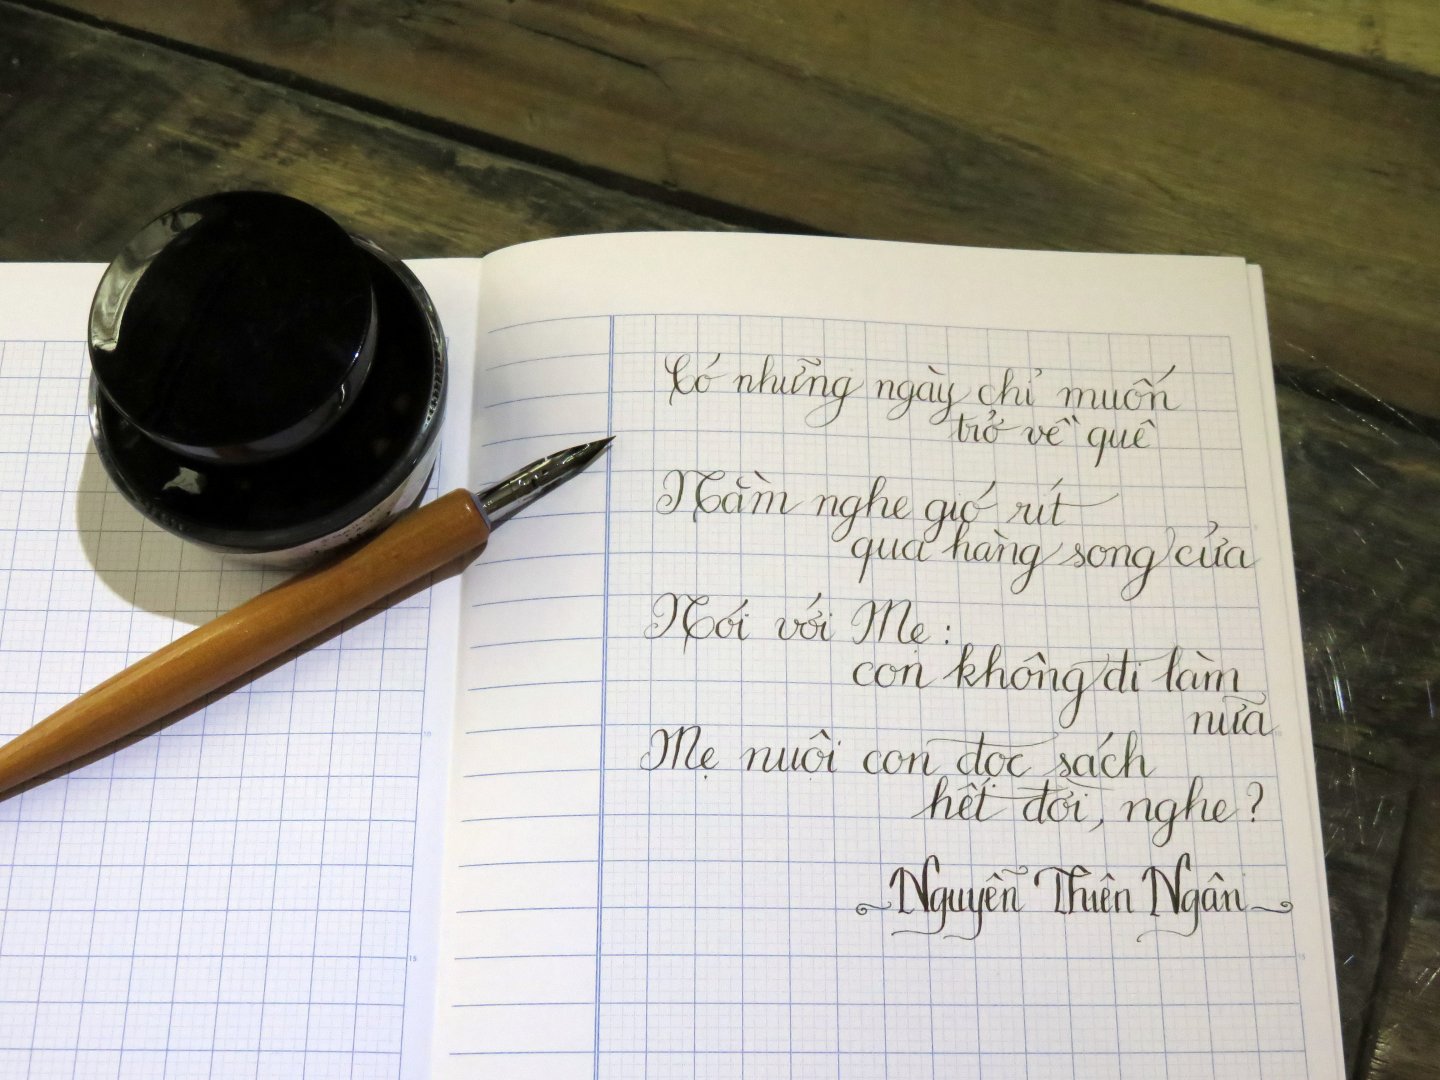 Có những ngày chỉ muốn
trở về quê
Nằm nghe gió rít
qua hàng song cửa
Nói với Mẹ:
con không đi làm
nữa
Mẹ nuôi con đọc sách
hết đời, nghe?
Nguyễn Thiên Ngân